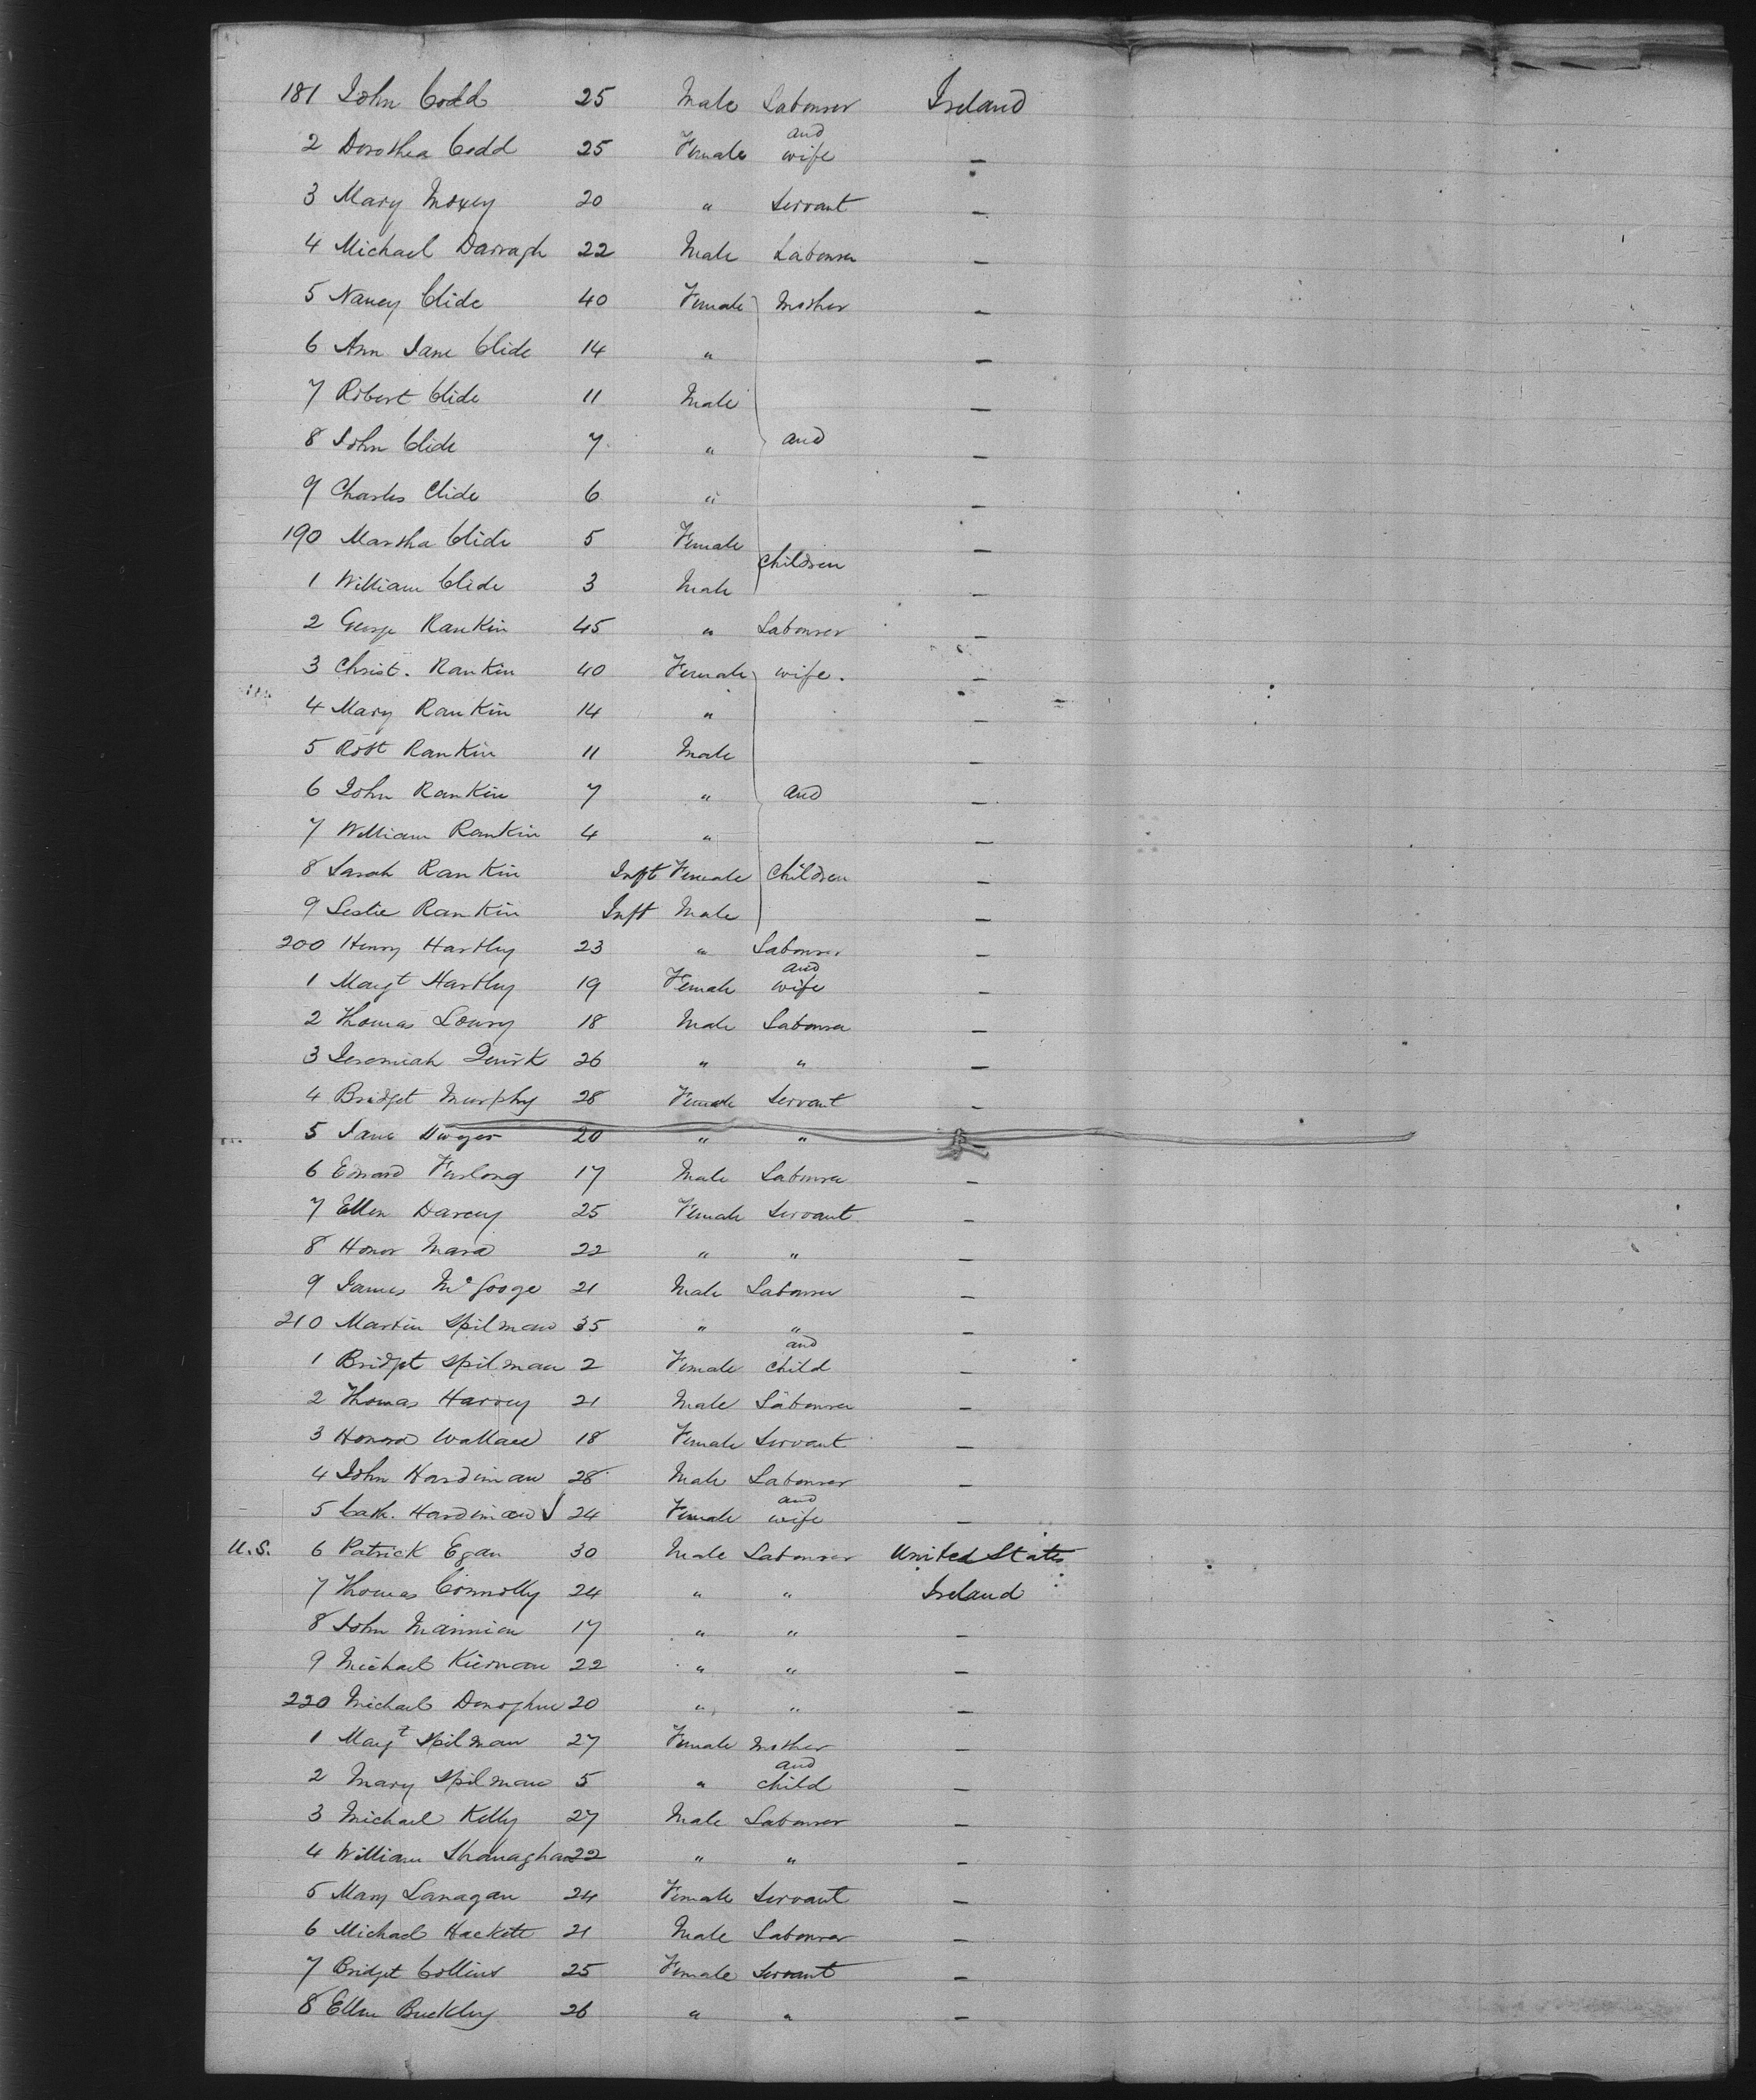 181 John Codd 25 Male Labourer Ireland
2 Dorothea Codd 25 Female and wife —
3 Mary Moxey 20 " Servant —
4 Michael Darragh 22 Male Labourer —
5 Nancy Clide 40 Female Mother —
6 Ann Jane Clide 14 " —
7 Robert Clide 11 Male —
8 John Clide 7 " and —
9 Charles Clide 6 " —
190 Martha Clide 5 Female children —
1 William Clide 3 Male —
2 George Rankin 45 " Labourer —
3 Christ. Rankin 40 Female wife. —
4 Mary Rankin 14 " —
5 Robt Rankin 11 Male —
6 John Rankin 7 " and —
7 William Rankin 4 " —
8 Sarah Rankin Inft Female children —
9 Leslie Rankin Inft Male —
200 Henry Hartley 23 " Labourer —
1 Margt Hartley 19 Female and wife —
2 Thomas Lowry 18 Male Labourer —
3 Jeremiah Quirk 26 " " —
4 Bridget Murphy 28 Female Servant —
5 Jane Dwyer 20 " " —
6 Edward Furlong 17 Male Labourer —
7 Ellen Darcey 25 Female Servant —
8 Honor Mara 22 " " —
9 James Mc 21 Male Labourer —
210 Martin Spilman 35 " " —
1 Bridget Spilman 2 Female and child —
2 Thomas Harvey 21 Male Labourer —
3 Honora Wallace 18 Female Servant —
4 John Hardiman 28 Male Labourer —
5 Cath. Hardiman √ 24 Female and wife —
U.S. 6 Patrick Egan 30 Male Labourer United States
7 Thomas Connolly 24 " " Ireland
8 John Mannion 17 " " —
9 Michael Kiernan 22 " " —
220 Michael Donoghue 20 " " —
1 Margt Spilman 27 Female Mother —
2 Mary Spilman 5 " and child —
3 Michael Kelly 27 Male Labourer —
4 William Shanaghan 22 " " —
5 Mary Lanagan 24 Female Servant —
6 Michael Hackett 21 Male Labourer —
7 Bridget Collins 25 Female Servant —
8 Ellen Buckley 26 " " —